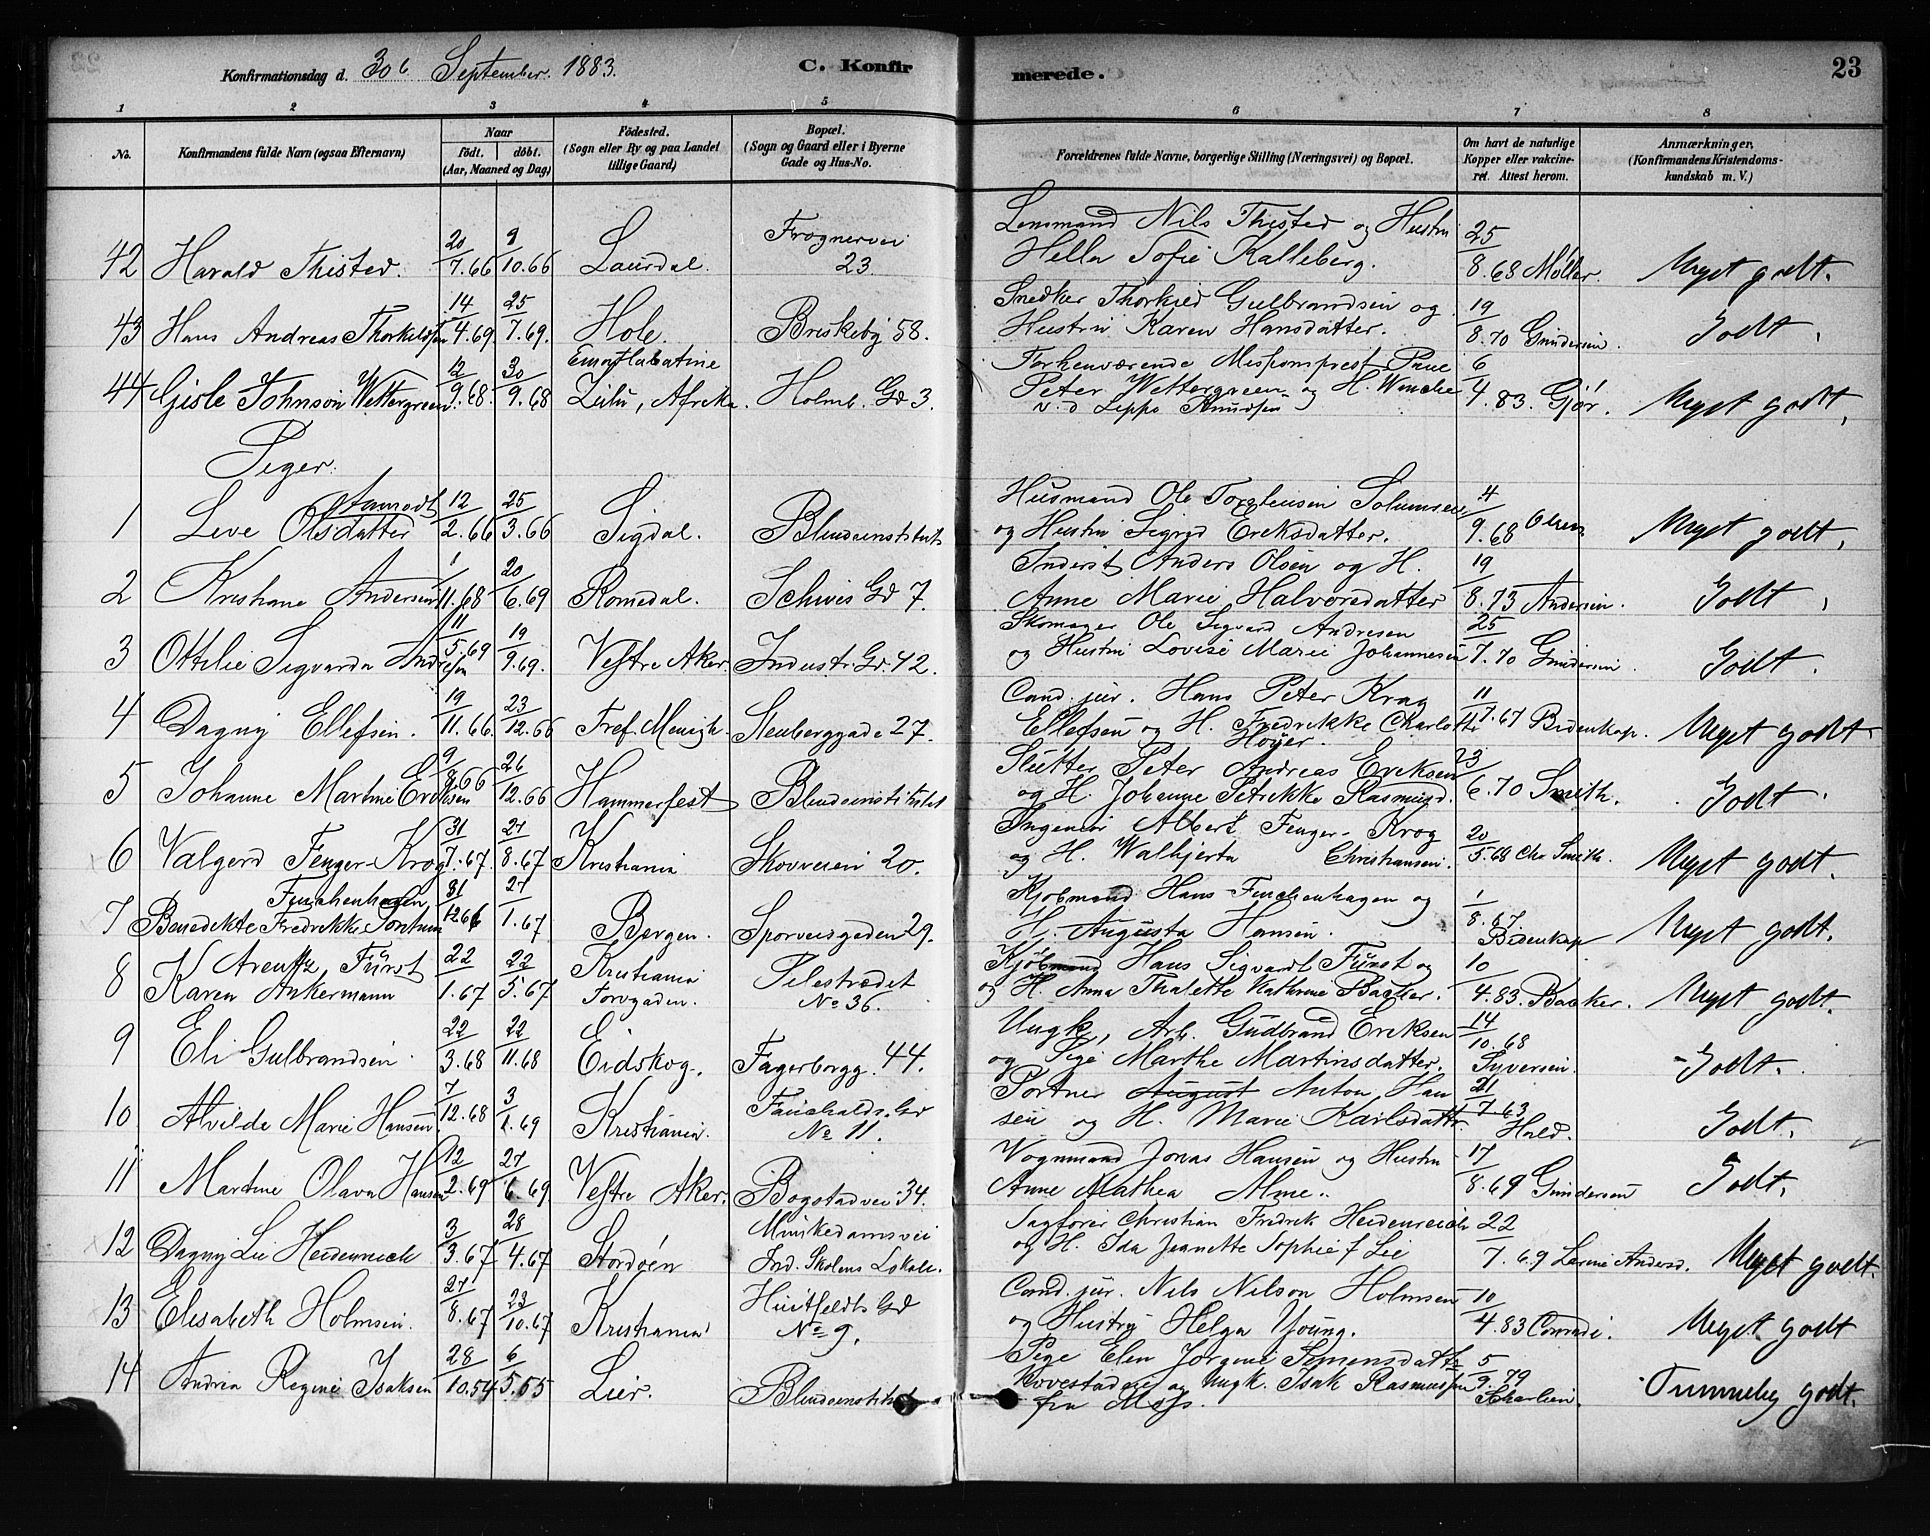 Konfirmationsdag d. 30te September 1883. C. Konfirmerede. 23
1 2 3 4 5 6 7 8
No. Konfirmandens fulde Navn (ogsaa Efternavn) Naar födt. döbt. (Aar, Maaned og Dag) Födested. (Sogn eller By og paa Landet tillige Gaard) Bopæl. (Sogn og Gaard eller i Byerne Gade og Hus-No. Forældrenes fulde Navne, borgerlige Stilling (Næringsvei) og Bopæl. Om havt de naturlige Kopper eller vakcineret. Attest herom. Anmærkninger, (Konfirmandens Kristendomskundskab m. V.)
42 Harald Thisted. 20/7.66 9/10.66 Laurdal. Frognervei 23. Lensmand Nils Thisted og Hustru Hella Sofie Kalleberg. 25/8.68 Møller. Meget godt.
43 Hans Andreas Thorkildsen 14/4.69 25/7.69. Hole. Briskeby 58. Snedker Thorkild Gulbrandsen og Hustru Karen Hansdatter. 19/8.70 Gundersen. Godt.
44 Gisle Johnson Wettergreen. 12/9.68. 30/9.68 Zulu, Afrika. Holmb. Gd 3. Forhenværende Missionsprest Paul Peter Wettergreen og H. Wenche v. d Lippe Knudsen 6/4.83. Gjør. Meget godt.
Piger.
1 Live Olsdatter 12/2.66 25/3.66 Sigdal. Blindeinstitut Husmand Ole Torstensen Solumsen og Hustru Sigrid Eriksdatter. 4/9.68 Olsen Meget godt.
2 Kristiane Andersen 1/11.68 20/6.69 Romedal. Schives Gd 7. Inderst Anders Olsen og H. Anne Marie Halvorsdatter 19/8.73 Andersen. Godt.
3 Ottilie Sigvarda Andresen 11/5.69 19/9.69. Vestre Aker. Industr. Gd. 42. Skomager Ole Sigvard Andresen og Hustru Lovise Marie Johannesen 25/7.70 Gundersen. Godt.
4 Dagny Ellefsen. 19/11.66. 23/12.66 Tref. Menigh. Stenberggade 27. Cand. jur. Hans Peter Krag Ellefsen og H. Fredrikke Charlotte Høyer. 11/7.67 Bidenkap. Meget godt.
5 Johanne Martine Eriksen 9/8 66 26/12.66 Hammerfest Blindeinstitutet Slutter Peter Andreas Eriksen og H. Johanne Petrikke Rasmusd. 23/6.70 Smith. Godt.
6 Valgerd Fenger-Krog 31/7.67 27/8.67 Kristiania Skovveien 20. Ingeniør Albert Fenger-Krog og H. Walhjerta Christiansen. 20/5.68 Chr Smith. Meget godt.
7 Benedikte Fredrikke Finchenhagen 31/12 66 27/1.67 Bergen. Sporveisgaden 29. Kjøbmand Hans Finchenhagen og H. Augusta Hansen. 1/8.67 Bidenkap Meget godt.
8 Karen Arentz Fürst Ankermann 22/1.67 22/5.67 Kristiania Torvgaden. Pilestrædet No 36. Kjøbmand Hans Sigvardt Fürst og H. Anna Thalette Kathrine Backer. 10/4.83. Backer. Meget godt.
9 Eli Gulbrandsen. 22/3.68 22/11.68 Eidskog. Fagerborgg. 44. Ungk., Arb. Gudbrand Eriksen og Pige Marthe Martinsdatter. 14/10.68 Syversen. Godt.
10 Alvilde Marie Hansen 7/12.68 3/1.69 Kristiania. Fauchalds. Gd No 11. Portner August Anton Hansen og H. Marie Karlsdatter 21/7 63 Hald. Godt.
11 Martine Olava Hansen 12/2.69 27/6 69 Vestre Aker. Bogstadvei 34. Vognmand Jonas Hansen og Hustru Anne Mathea Alme. 17/8.69 Gundersen Godt.
12 Dagny Lie Heidenreich 3/3.67 28/4.67 Stordøen Munkedamsvei Ind. Skolens Lokale. Sagfører Christian Fredrik Heidenreich og H. Ida Jeanette Sophie f Lie 22/7.69 Andersd. Meget godt.
13 Elisabeth Holmsen. 27/8.67 23/10.67 Kristiania Huitfeldts Gd No 9. Cand. jur. Nils Nilson Holmsen og Hustru Helga Young. 10/4.83 Conradi. Meget godt
14 Andrea Regine Isaksen 28/10.54 6/5.55 Lier. Blindeinstitut Pige Elen Jørgine Simensdatter og Ungk. Isak Rasmussen fra Moss. 5/9.79 Scharlien. Temmelig godt.